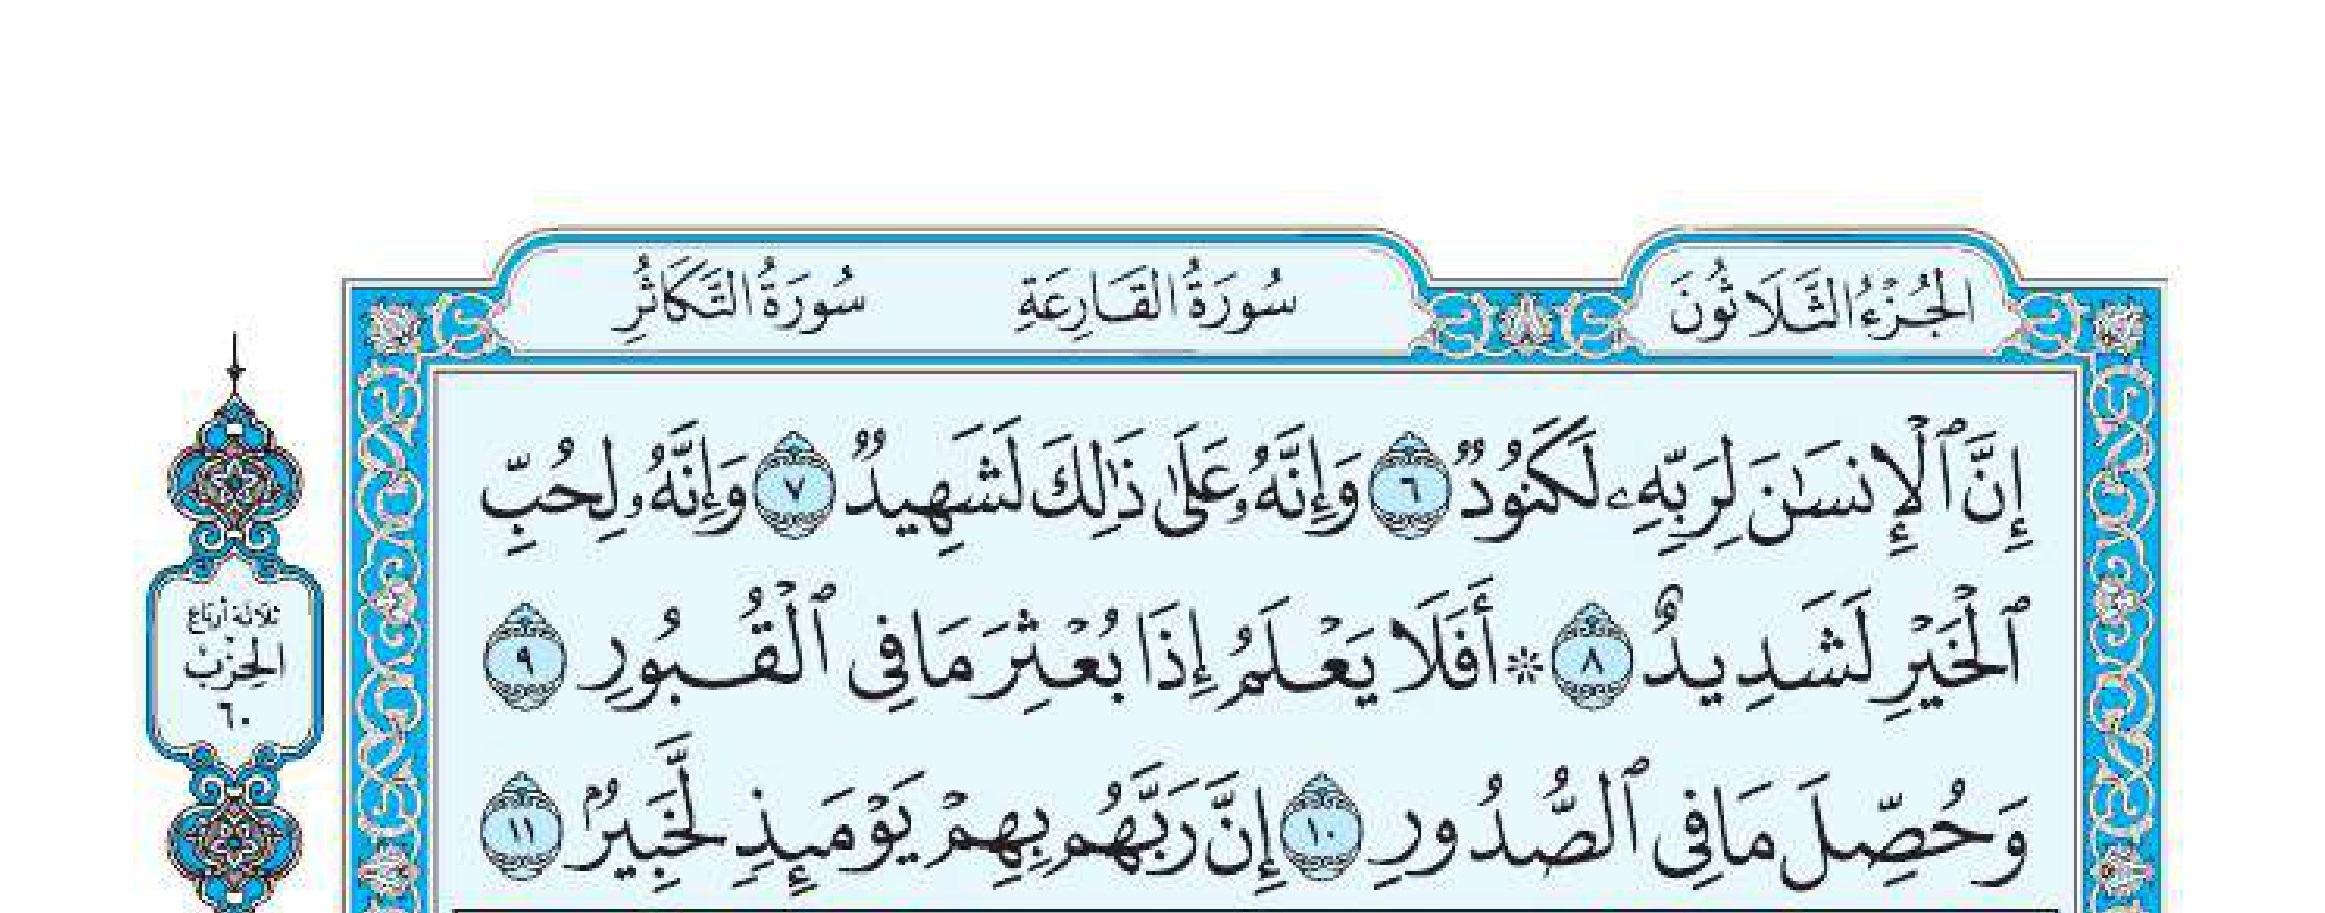 الجُزْءُ الثَّلَاثُونَ سُورَةُ القَارِعَةِ سُورَةُ التَّكَاثُرِ
إِنَّ ٱلْإِنسَٰنَ لِرَبِّهِۦ لَكَنُودٌ ٦ وَإِنَّهُۥ عَلَىٰ ذَٰلِكَ لَشَهِيدٌ ٧ وَإِنَّهُۥ لِحُبِّ
ٱلْخَيْرِ لَشَدِيدٌ ٨ ۞ أَفَلَا يَعْلَمُ إِذَا بُعْثِرَ مَا فِى ٱلْقُبُورِ ٩
وَحُصِّلَ مَا فِى ٱلصُّدُورِ ١٠ إِنَّ رَبَّهُم بِهِمْ يَوْمَئِذٍ لَّخَبِيرٌۢ ١١
ثلاثة أرباع
الحِزْبْ
٦٠